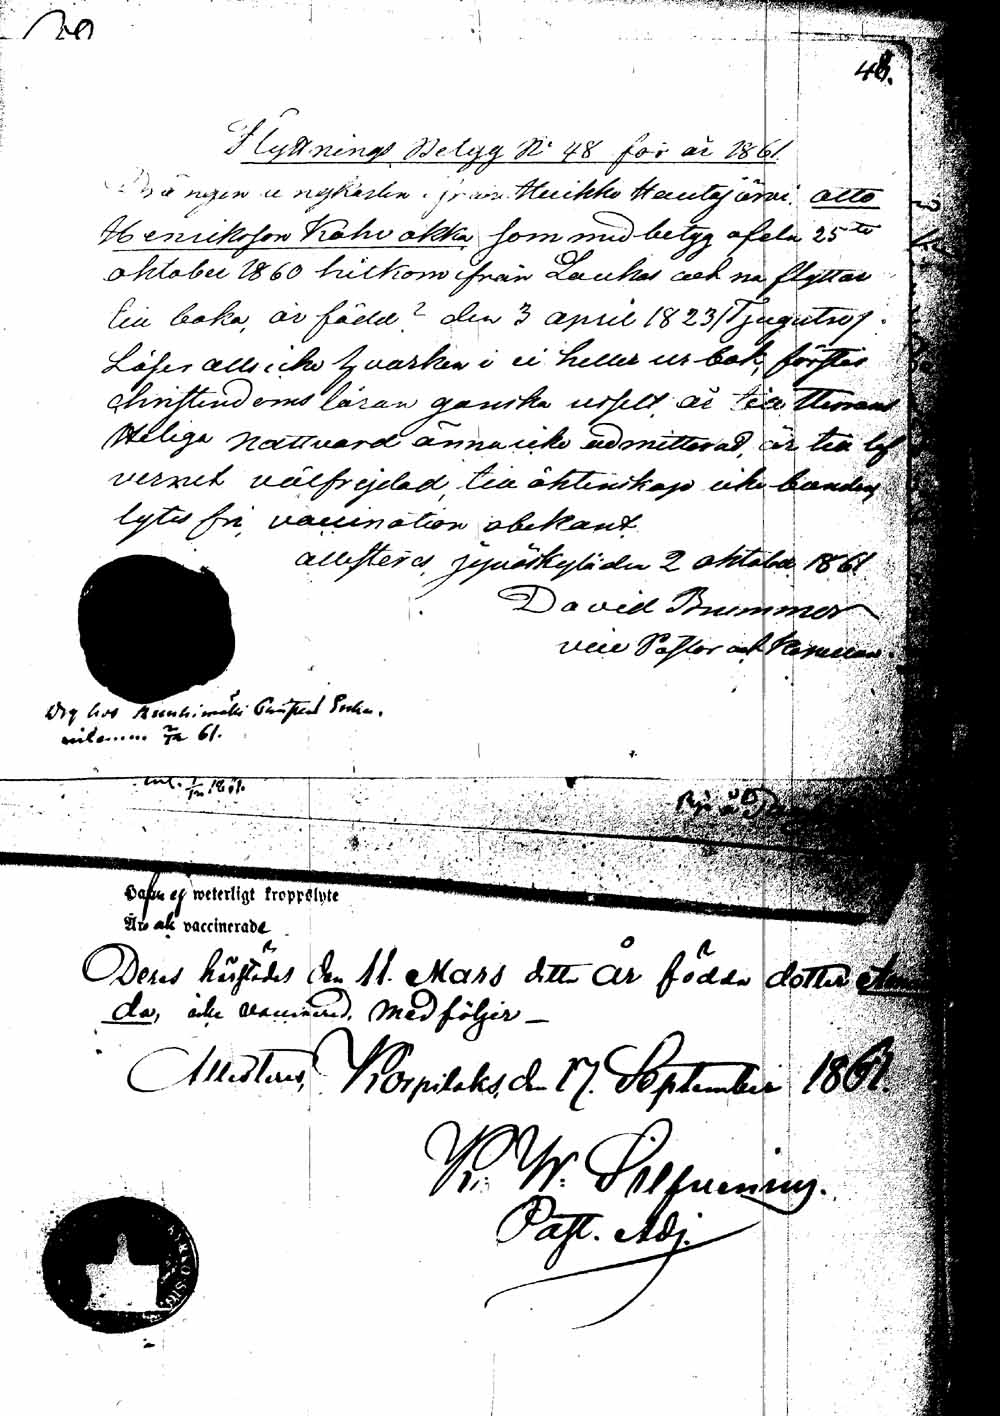 48.
Flyttnings Betyg No 48 för år 1861
Drängen ungkarlen från Heikko Hautajärvi, Otto
Henriksson Kahvakka som med betyg afdn 25te
oktober 1860 hitkom ifrån Laukas och nu flyttar
till baka, är född? den 3 april 1823/Tjugutre/.
Läser alls icke hvarken i ei heller ur bok, förstår
christendoms läran ganska uselt, är till Herrans
Heliga nattvard ännu icke admitterad, är till lef
vernet välfrejdad, till äktenskap icke bunden
lytes fri, vaccination obekant.
Attesteras, Jyväskylä den 2 oktober 1861
David Brummer
vice Pastor och Kapellan.
61.
Hafva ej weterligt kroppslyte
Äro ock vaccinerade
Deras härstädes den 11. Mars detta År födda dotter Aman
da, icke vaccinerad, medföljer —
Attesteras, Korpilaks, den 17. September 1861.
K. W. Silfvenius.
Past. Adj.
KYRKO SIG